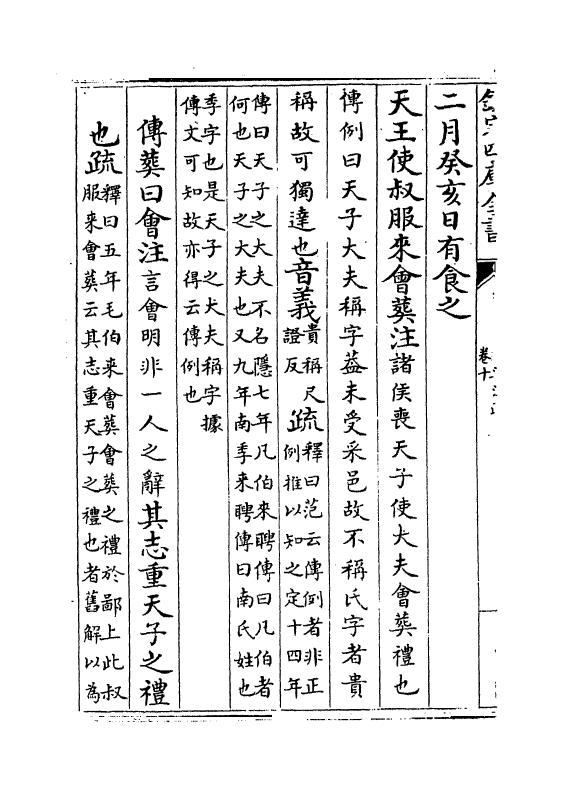 欽定四庫全書
卷十
二月癸亥日有食之
天王使叔服來會葬注諸侯喪天子使大夫會葬禮也
傳例曰天子大夫稱字葢未受采邑故不稱氏字者貴
稱故可獨達也音義貴稱尺證反疏釋曰范云傳例者非正例推以知之定十四年
傳曰天子之大夫不名隱七年凡伯來聘傳曰凡伯者
何也天子之大夫也又九年南季來聘傳曰南氏姓也
季字也是天子之大夫稱字據
傳文可知故亦得云傳例也
傳葬曰會注言會明非一人之辭其志重天子之禮
也疏釋曰五年毛伯来會葬會葬之禮於鄙上此叔
服来會葬云其志重天子之禮也者舊解以為